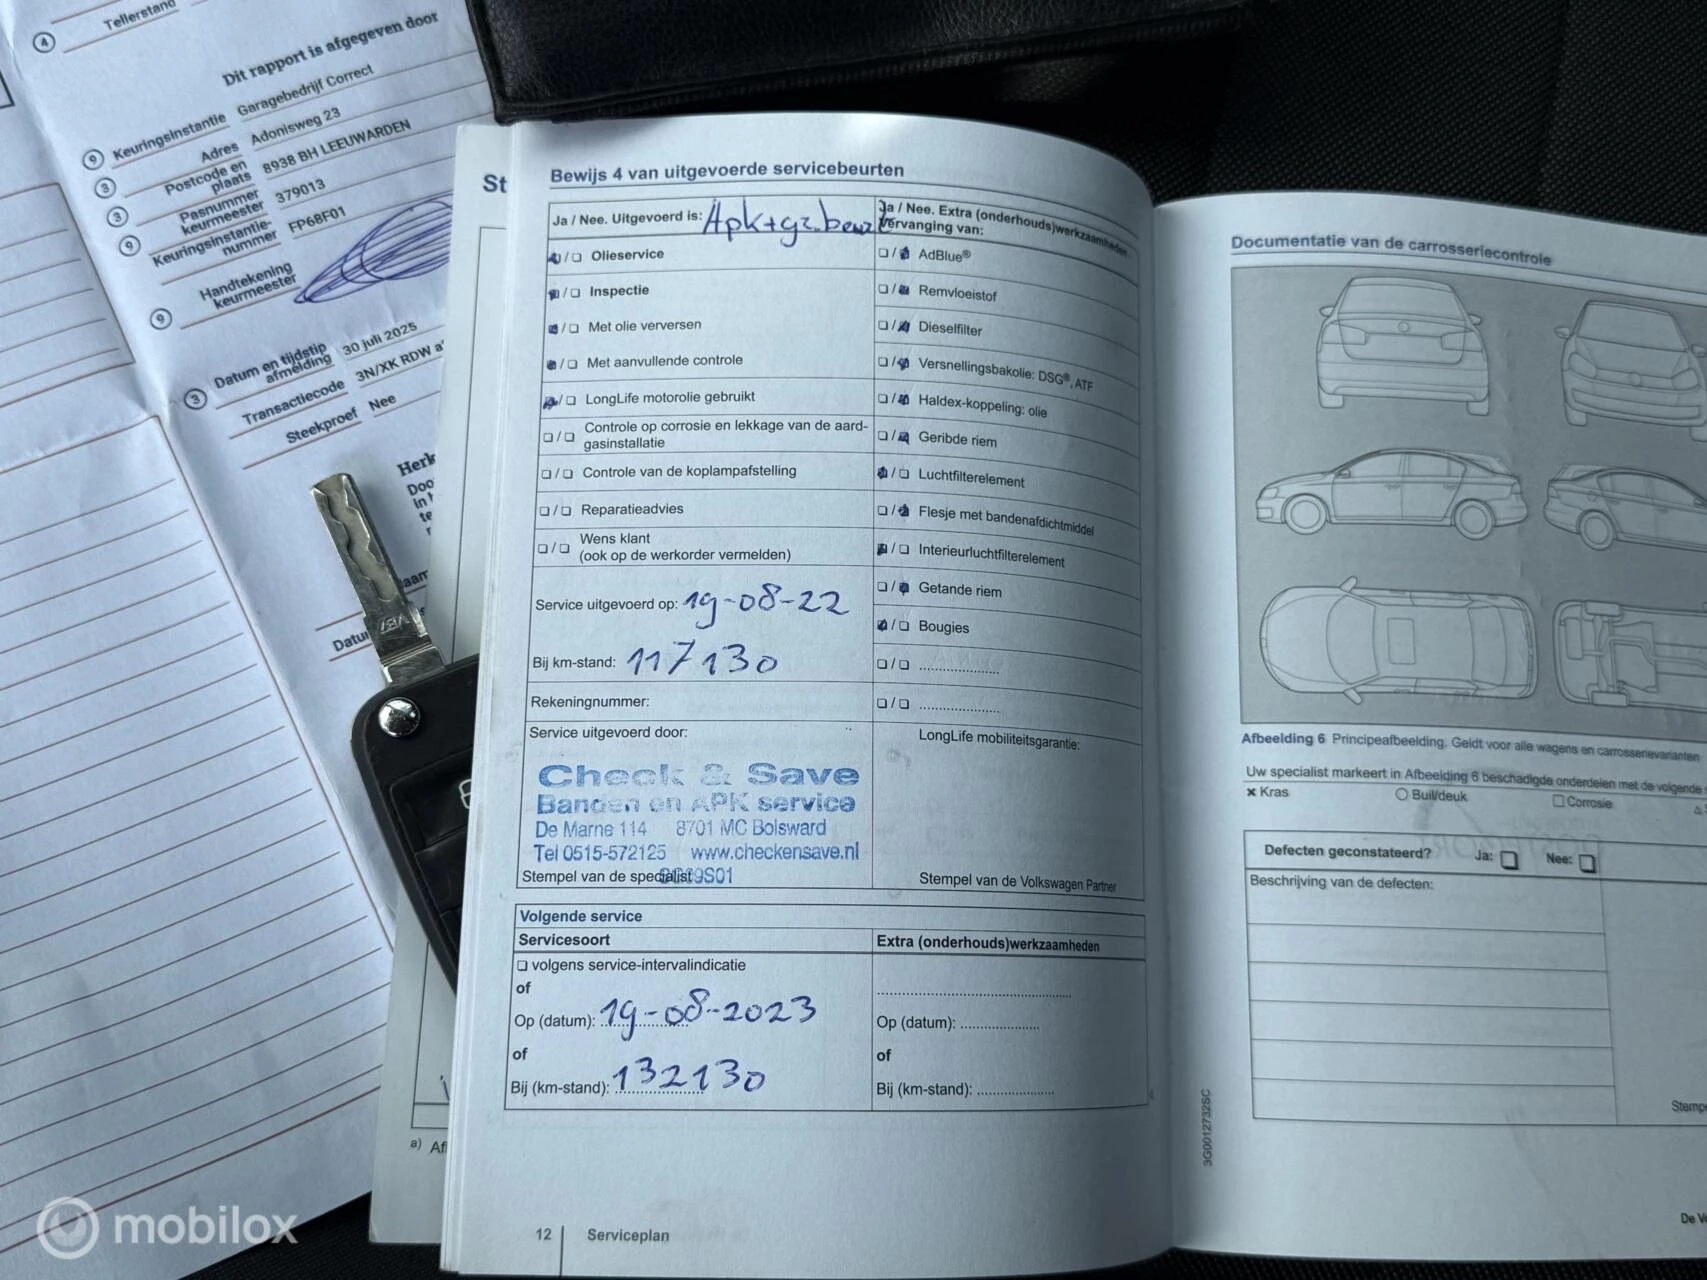 4 Tellerstand
Dit rapport is afgegeven door
9 Keuringsinstantie Garagebedrijf Correct
3 Adres Adonisweg 23
3 Postcode en plaats 8938 BH LEEUWARDEN
9 Pasnummer keurmeester 379013
Keuringsinstantie-nummer FP68F01
9 Handtekening keurmeester
3 Datum en tijdstip afmelding 30 juli 2025
Transactiecode 3N/XK RDW
Steekproef Nee
St
Bewijs 4 van uitgevoerde servicebeurten
Ja / Nee. Uitgevoerd is: Apk+gr.beurt
☐/☐ Olieservice
☐/☐ Inspectie
☐/☐ Met olie verversen
☐/☐ Met aanvullende controle
☐/☐ LongLife motorolie gebruikt
☐/☐ Controle op corrosie en lekkage van de aard-
gasinstallatie
☐/☐ Controle van de koplampafstelling
☐/☐ Reparatieadvies
☐/☐ Wens klant
(ook op de werkorder vermelden)
Service uitgevoerd op: 19-08-22
Bij km-stand: 117130
Rekeningnummer:
Service uitgevoerd door:
Check & Save
Banden en APK service
De Marne 114 8701 MC Bolsward
Tel 0515-572125 www.checkensave.nl
Stempel van de specialist
Ja / Nee. Extra (onderhouds)werkzaamheden -
vervanging van:
☐/☐ AdBlue®
☐/☐ Remvloeistof
☐/☐ Dieselfilter
☐/☐ Versnellingsbakolie: DSG®, ATF
☐/☐ Haldex-koppeling: olie
☐/☐ Geribde riem
☐/☐ Luchtfilterelement
☐/☐ Flesje met bandenafdichtmiddel
☐/☐ Interieurluchtfilterelement
☐/☐ Getande riem
☐/☐ Bougies
☐/☐ ....................
☐/☐ ....................
LongLife mobiliteitsgarantie:
Stempel van de Volkswagen Partner
Volgende service
Servicesoort
☐ volgens service-intervalindicatie
of
Op (datum): 19-08-2023
of
Bij (km-stand): 132130
Extra (onderhouds)werkzaamheden
Op (datum): ....................
of
Bij (km-stand): ....................
12 Serviceplan
a)
Documentatie van de carrosseriecontrole
Afbeelding 6 Principeafbeelding. Geldt voor alle wagens en carrosserievarianten
Uw specialist markeert in Afbeelding 6 beschadigde onderdelen met de volgende
× Kras ○ Buil/deuk ☐ Corrosie
Defecten geconstateerd? Ja: ☐ Nee: ☐
Beschrijving van de defecten:
3G0012732SC
mobilox